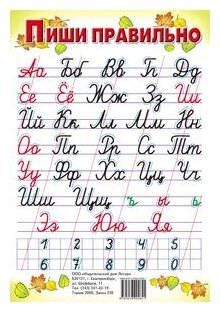 Пиши правильно
Аа Бб Вв Гг Дд
Ее Ёё Жж Зз Ии
Йй Кк Лл Мм Нн
Оо Пп Рр Сс Тт
Уу Фф Хх Цц Чч
Шш Щщ ъ ы ь
Ээ Юю Яя
1 2 3 4 5 6 7 8 9 0
ООО «Издательский дом Литур»
г. Екатеринбург,